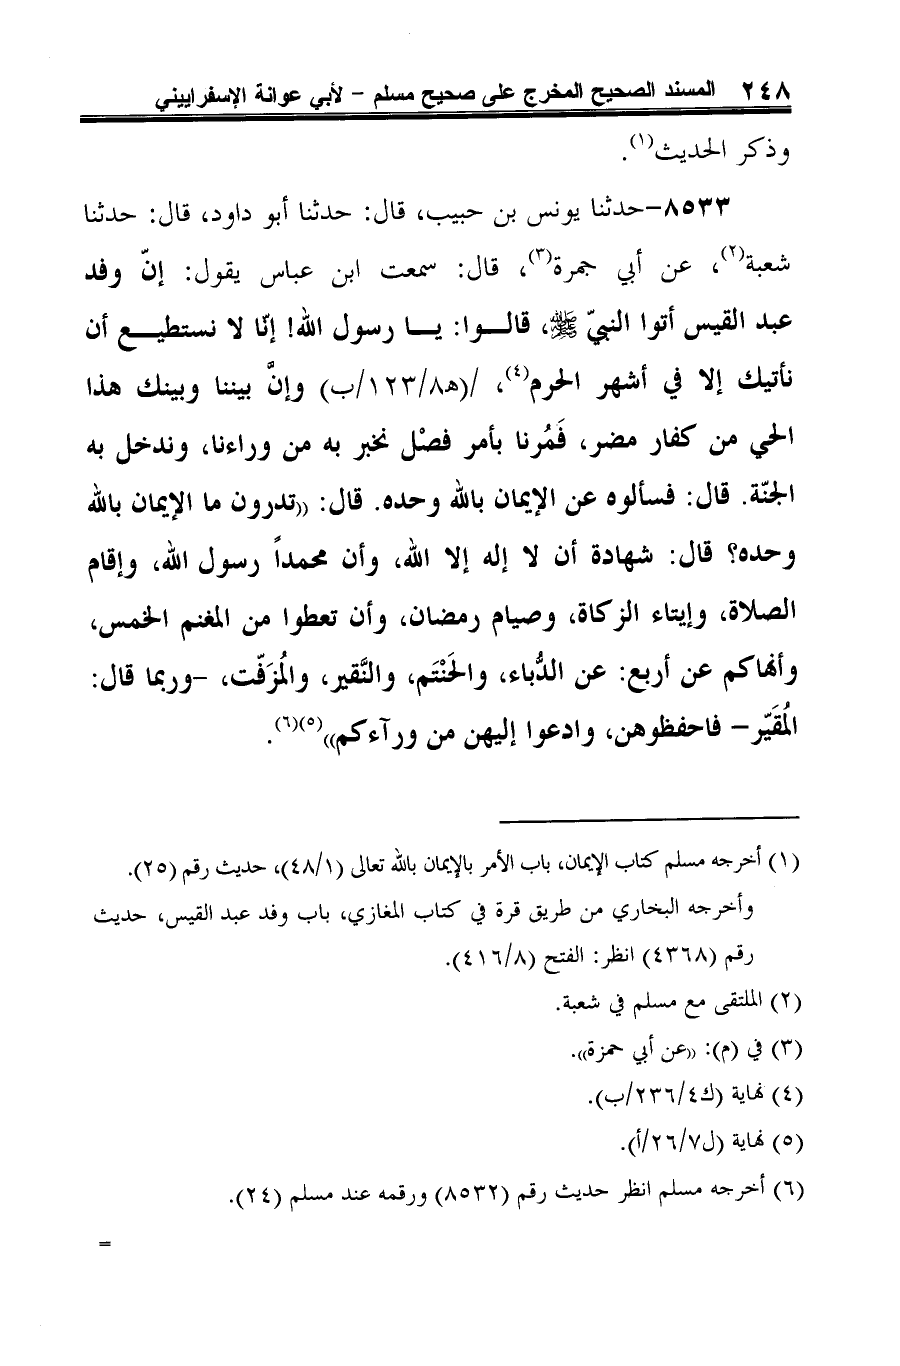 ٢٤٨ المسند الصحيح المخرج على صحيح مسلم - لأبي عوانة الإسفراييني
وذكر الحديث(١).
٨٥٣٣-حدثنا يونس بن حبيب، قال: حدثنا أبو داود، قال: حدثنا
شعبة(٢)، عن أبي جمرة(٣)، قال: سمعت ابن عباس يقول: إنّ وفد
عبد القيس أتوا النبيّ ﷺ، قالـوا: يـا رسول الله! إنّا لا نستطيـع أن
نأتيك إلا في أشهر الحرم(٤)، /(هـ١٢٣/٨/ب) وإنَّ بيننا وبينك هذا
الحي من كفار مضر، فَمُرنا بأمر فصْل نخبر به من وراءنا، وندخل به
الجنّة. قال: فسألوه عن الإيمان بالله وحده. قال: ((تدرون ما الإيمان بالله
وحده؟ قال: شهادة أن لا إله إلا الله، وأن محمداً رسول الله، وإقام
الصلاة، وإيتاء الزكاة، وصيام رمضان، وأن تعطوا من المغنم الخمس،
وأنهاكم عن أربع: عن الدُّباء، والحَنْتَم، والنَّقير، والمُزَفّت، -وربما قال:
المُقَيّر- فاحفظوهن، وادعوا إليهن من ورآءكم))(٥)(٦).
(١) أخرجه مسلم كتاب الإيمان، باب الأمر بالإيمان بالله تعالى (٤٨/١)، حديث رقم (٢٥).
وأخرجه البخاري من طريق قرة في كتاب المغازي، باب وفد عبد القيس، حديث
رقم (٤٣٦٨) انظر: الفتح (٤١٦/٨).
(٢) الملتقى مع مسلم في شعبة.
(٣) في (م): ((عن أبي حمزة)).
(٤) نهاية (ك٢٣٦/٤/ب).
(٥) نهاية (ل٢٦/٧/أ).
(٦) أخرجه مسلم انظر حديث رقم (٨٥٣٢) ورقمه عند مسلم (٢٤).
=